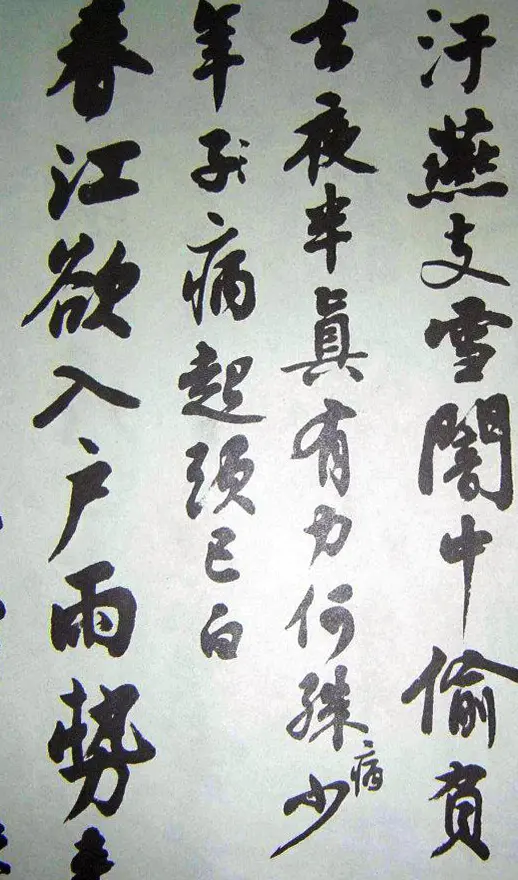 汙燕支雪闇中偷負
去夜半眞有力何殊病少
年子病起頭已白
春江欲入戶雨勢